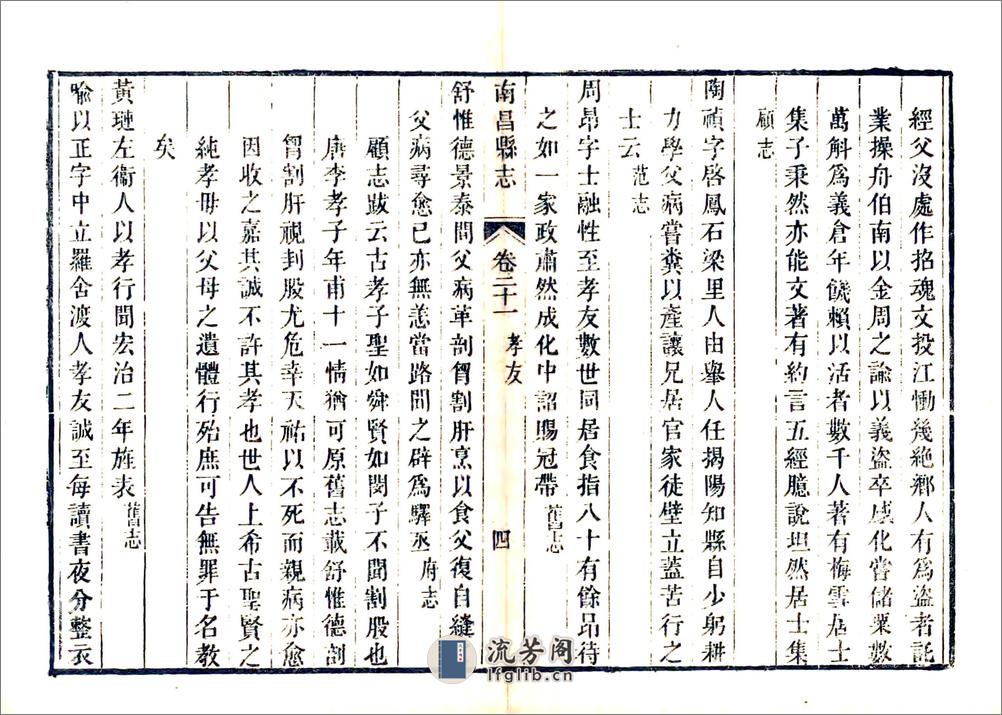 經父沒處作招魂文投江慟幾絕鄉人有爲盜者託
業操舟伯南以金周之諭以義盜卒感化嘗儲粟數
萬斛爲義倉年饑賴以活者數千人著有梅雪居士
集子秉然亦能文著有約言五經臆說坦然居士集
顧志
陶禎字啓鳳石梁里人由舉人任揭陽知縣自少躬耕
力學父病嘗糞以產讓兄居官家徒壁立蓋苦行之
士云 范志
周昂字士融性至孝友數世同居食指八十有餘昂待
之如一家政肅然成化中詔賜冠帶 舊志
南昌縣志 卷三十一 孝友 四
舒惟德景泰間父病革剖胷割肝烹以食父復自縫
父病尋愈已亦無恙當路聞之辟爲驛丞 府志
顧志跋云古孝子聖如舜賢如閔子不聞割股也
唐李孝子年甫十一情猶可原舊志載舒惟德剖
胷割肝視刲股尤危幸天祐以不死而親病亦愈
因收之嘉其誠不許其孝也世人上希古聖賢之
純孝毋以父母之遺體行殆庶可告無罪于名教
矣
黃璉左衞人以孝行聞宏治二年旌表 舊志
喩以正字中立羅舍渡人孝友誠至每讀書夜分整衣
流芳阁
lfglib.cn